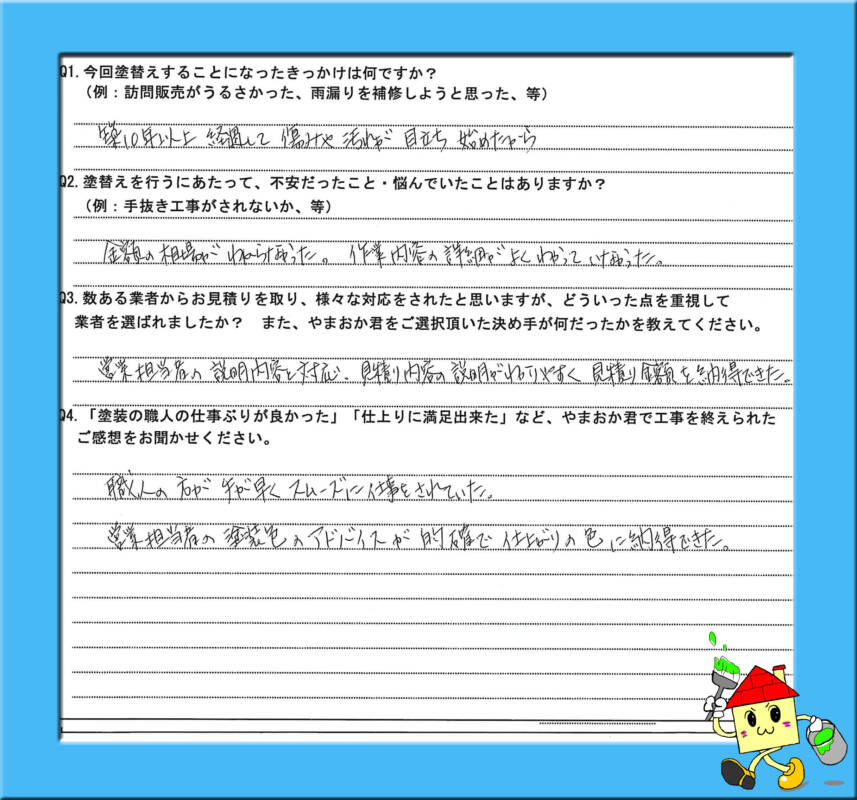 Q1. 今回塗替えすることになったきっかけは何ですか？
（例：訪問販売がうるさかった、雨漏りを補修しようと思った、等）
築10年以上 経過して 傷みや 汚れが 目立ち 始めたから
Q2. 塗替えを行うにあたって、不安だったこと・悩んでいたことはありますか？
（例：手抜き工事がされないか、等）
金額の相場がわからなかった。 作業内容の詳細がよくわかっていなかった。
Q3. 数ある業者からお見積りを取り、様々な対応をされたと思いますが、どういった点を重視して
業者を選ばれましたか？ また、やまおか君をご選択頂いた決め手が何だったかを教えてください。
営業担当者の説明内容と対応、見積り内容の説明がわかりやすく 見積り金額も納得できた。
Q4. 「塗装の職人の仕事ぶりが良かった」「仕上りに満足出来た」など、やまおか君で工事を終えられた
ご感想をお聞かせください。
職人の方が 手が早く スムーズに仕事をされていた。
営業担当者の 塗装色のアドバイスが 的確で 仕上がりの色に納得できた。